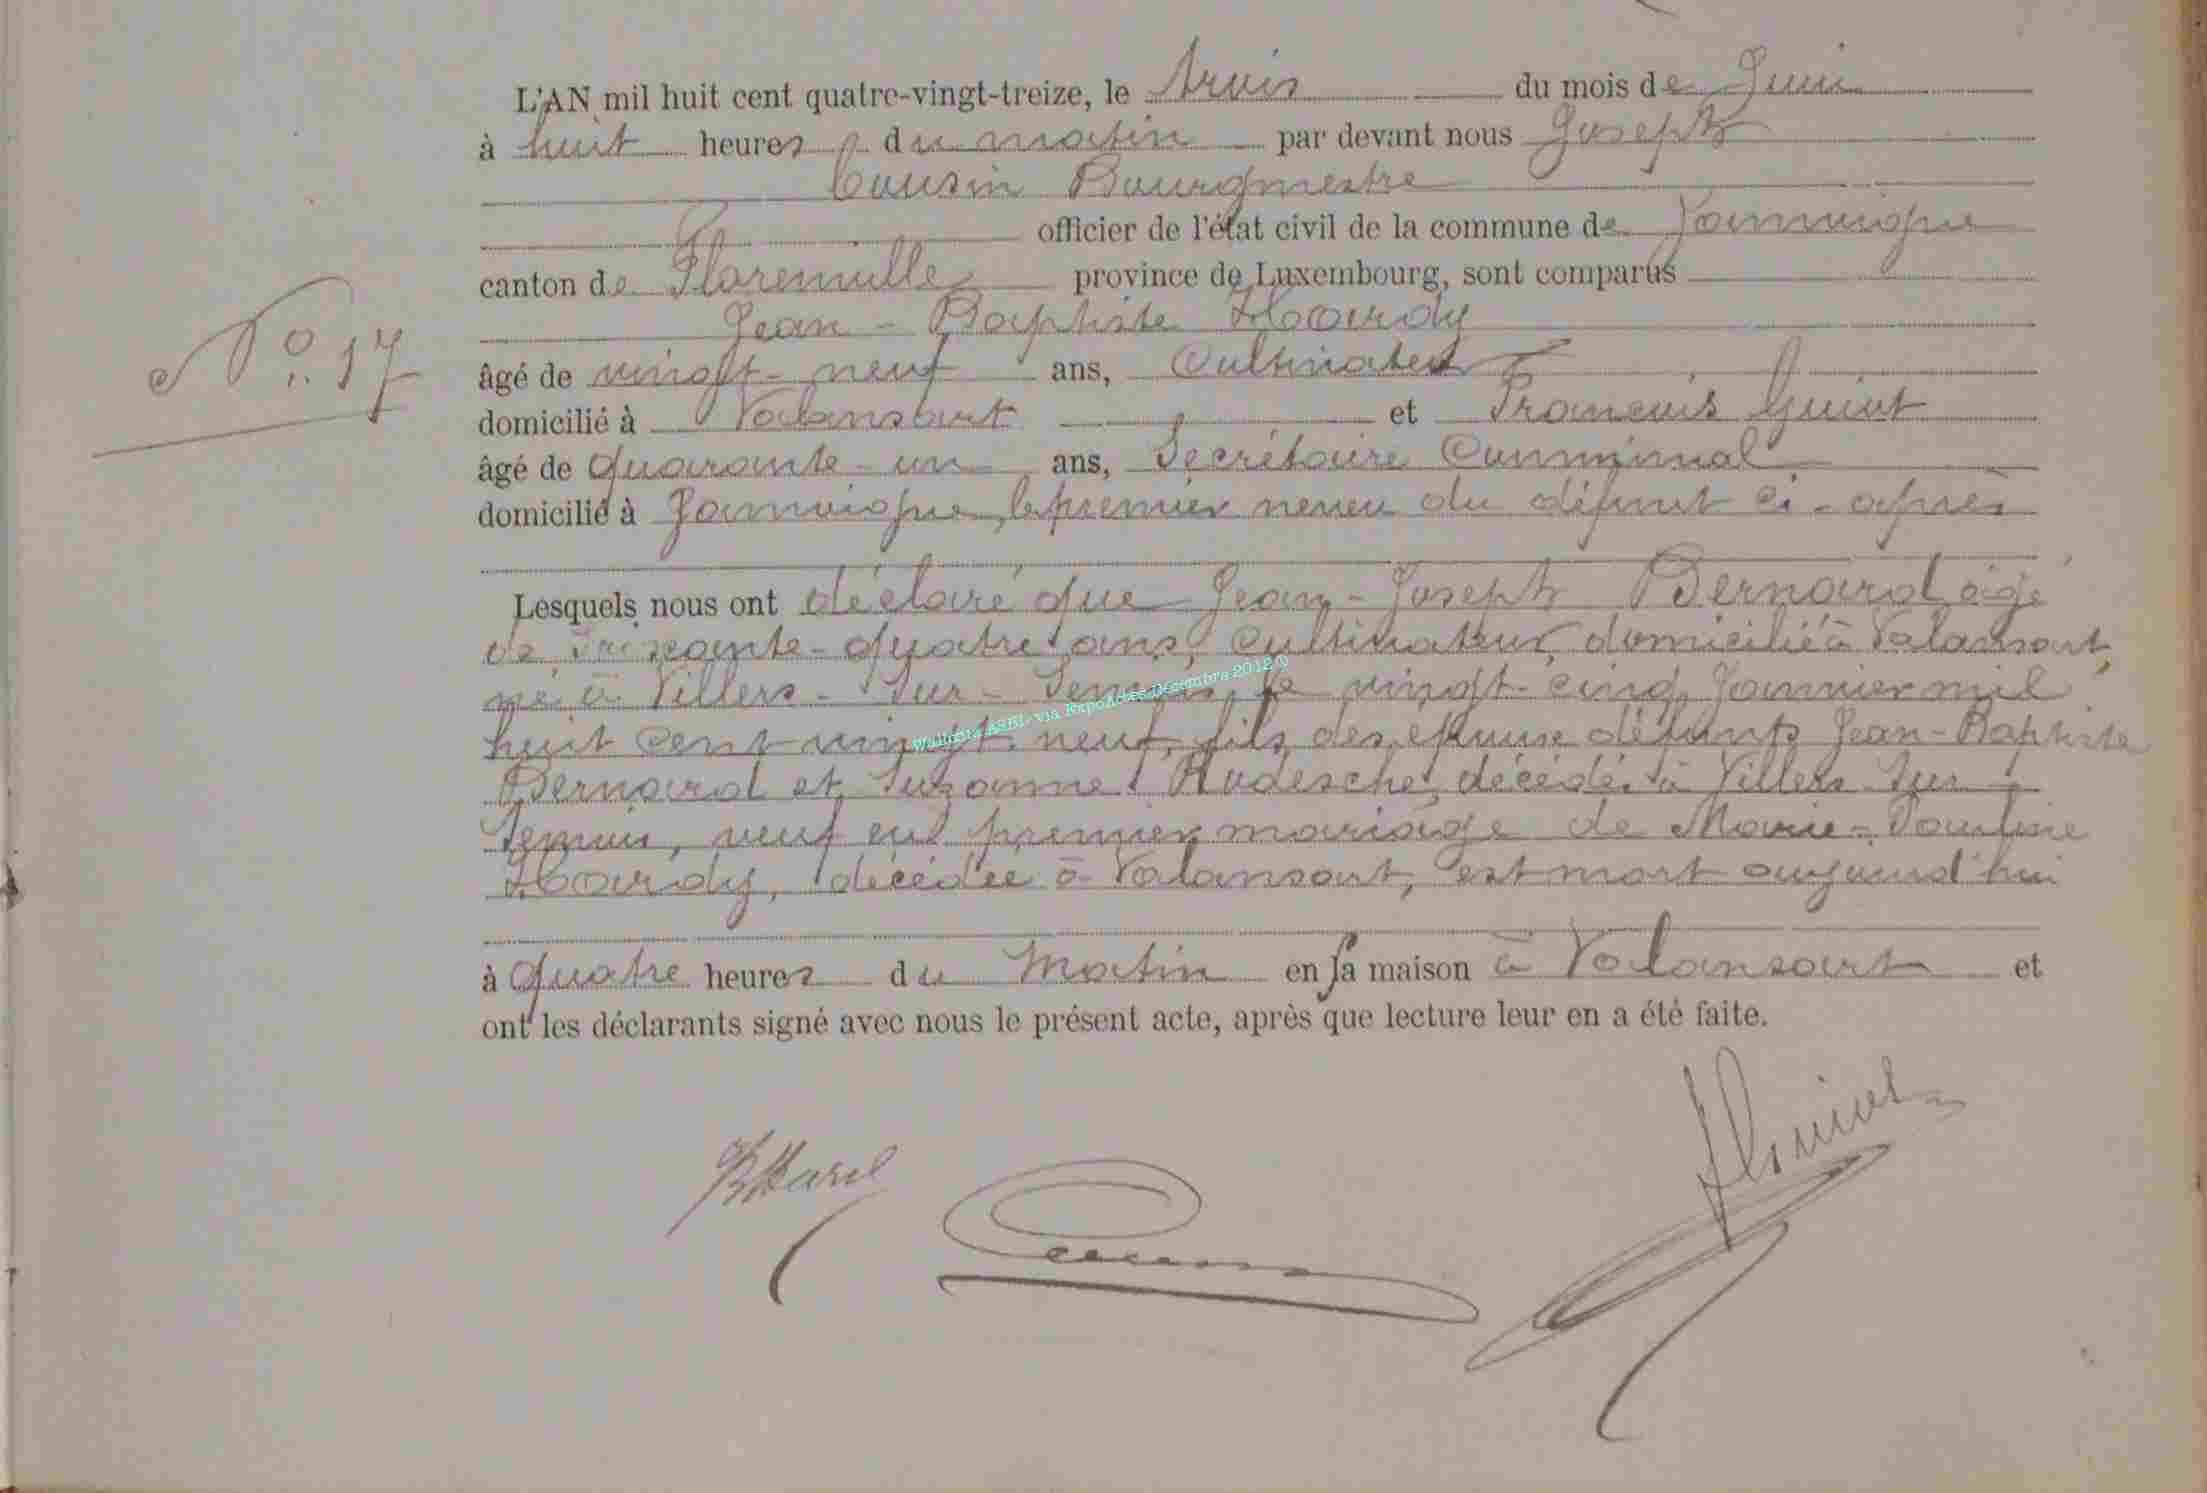 L'AN mil huit cent quatre-vingt-treize, le trois du mois de Juin
à huit heures du matin par devant nous Joseph
Cousin Bourgmestre
officier de l'état civil de la commune de Jamoigne
canton de Florenville province de Luxembourg, sont comparus
Jean-Baptiste Hardy
N° 17
âgé de vingt-neuf ans, Cultivateur
domicilié à Valansart et François Guiot
âgé de quarante-un ans, Secrétaire Communal
domicilié à Jamoigne, le premier neveu du défunt ci-après
Lesquels nous ont déclaré que Jean-Joseph Bernard âgé
de soixante-quatre ans, Cultivateur, domicilié à Valansart,
né à Villers-Sur-Semois, le vingt-cinq Janvier mil
huit cent vingt neuf, fils des époux défunts Jean-Baptiste
Bernard et Suzanne décédés à Villers Sur
Semois, veuf en premier mariage de Marie-Pauline
Hardy, décédée à Valansart, est mort aujourd'hui
à quatre heures du Matin en sa maison à Valansart et
ont les déclarants signé avec nous le présent acte, après que lecture leur en a été faite.
Wallonia ASBL via ExpoActes Décembre 2012 ©